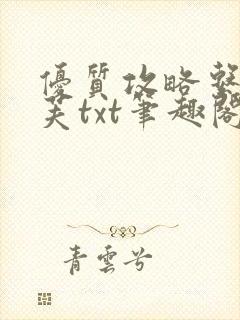 優質攻略
txt筆趣閣
青雲兮